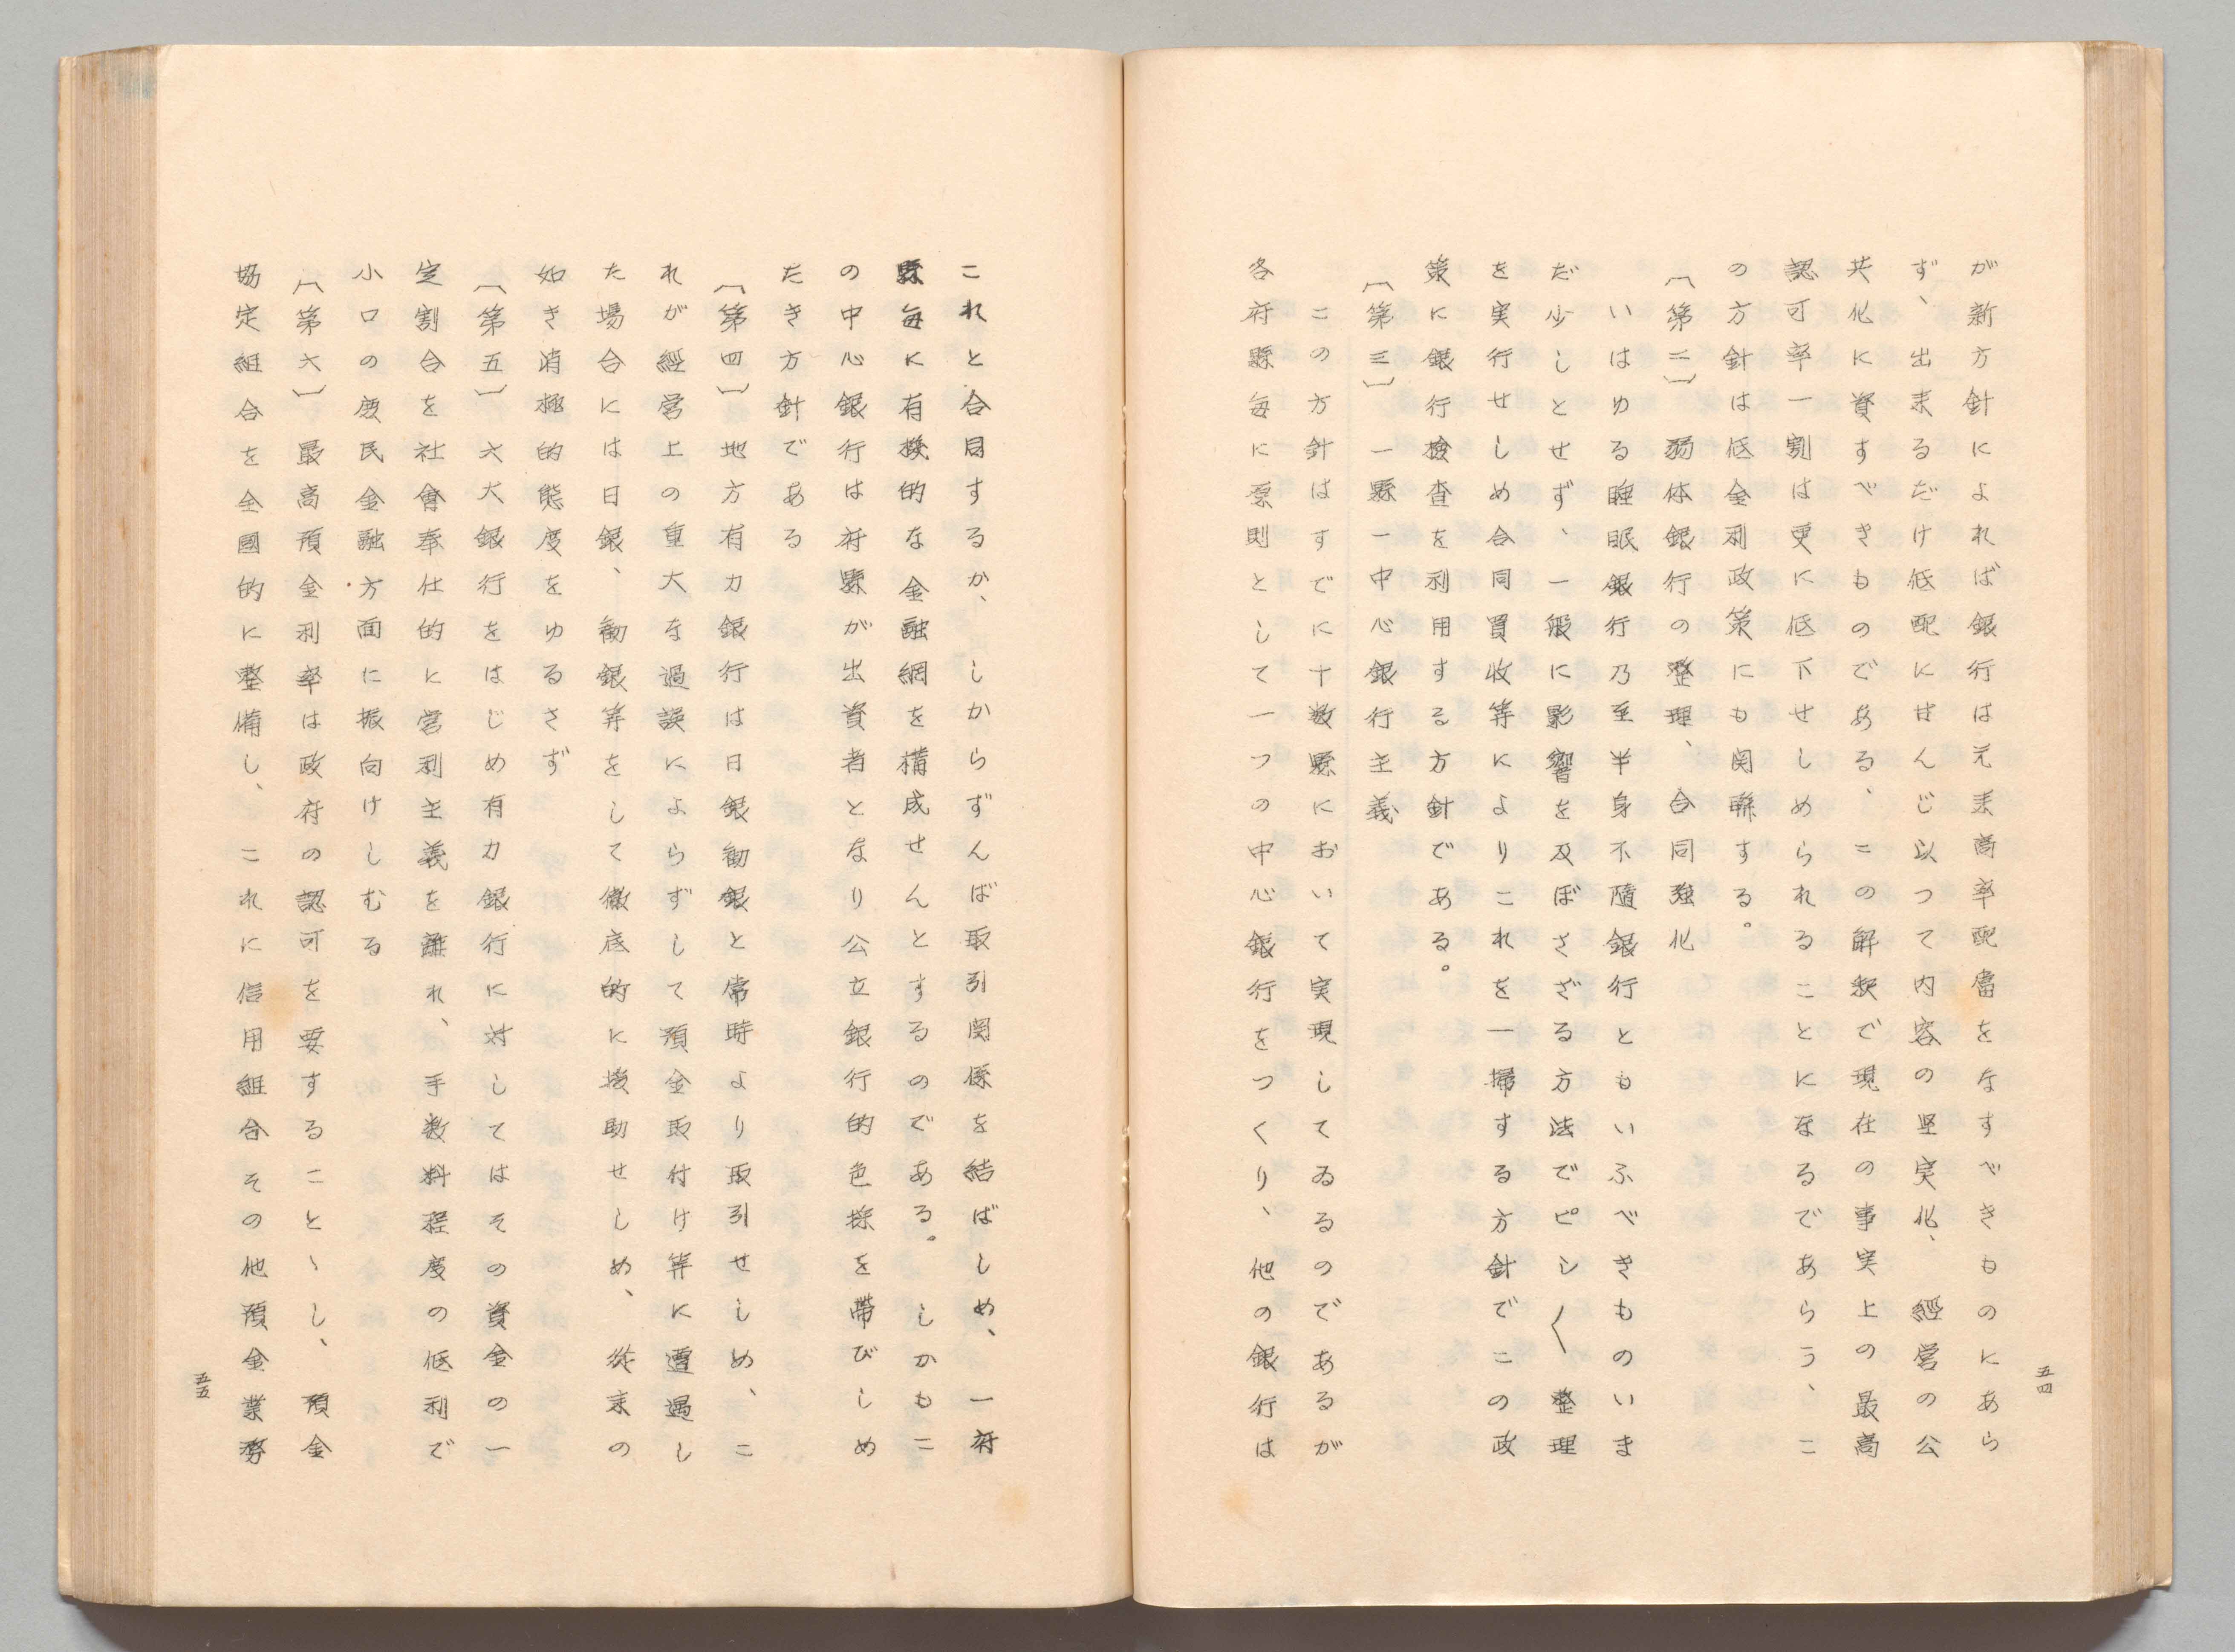 が新方針によれば銀行は元来高率配当をなすべきものにあら
ず、出来るだけ低配に甘んじ以つて内容の堅実化、経営の公
共化に資すべきものである、この解釈で現在の事実上の最高
認可率一割は更に低下せしめられることになるであらう、こ
の方針は低金利政策にも関聯する。
〔第二〕弱体銀行の整理、合同強化
いはゆる睡眠銀行乃至半身不随銀行ともいふべきものいま
だ少しとせず、一般に影響を及ぼさざる方法でピシ〳〵整理
を実行せしめ合同買収等によりこれを一掃する方針でこの政
策に銀行検査を利用する方針である。
〔第三〕一縣一中心銀行主義
この方針はすでに十数縣において実現してゐるのであるが
各府縣毎に原則として一つの中心銀行をつくり、他の銀行は
五四
これと合同するか、しからずんば取引関係を結ばしめ、一府
縣毎に有機的な金融網を構成せんとするのである。しかもこ
の中心銀行は府縣が出資者となり公立銀行的色採を帯びしめ
たき方針である
〔第四〕地方有力銀行は日銀勧銀と常時より取引せしめ、こ
れが経営上の重大な過誤によらずして預金取付け等に遭遇し
た場合には日銀、勧銀等をして徹底的に援助せしめ、従来の
如き消極的態度をゆるさず
〔第五〕六大銀行をはじめ有力銀行に対してはその資金の一
定割合を社會奉仕的に営利主義を離れ、手数料程度の低利で
小口の庶民金融方面に振向けしむる
〔第六〕最高預金利率は政府の認可を要することゝし、預金
協定組合を全國的に整備し、これに信用組合その他預金業務
五五